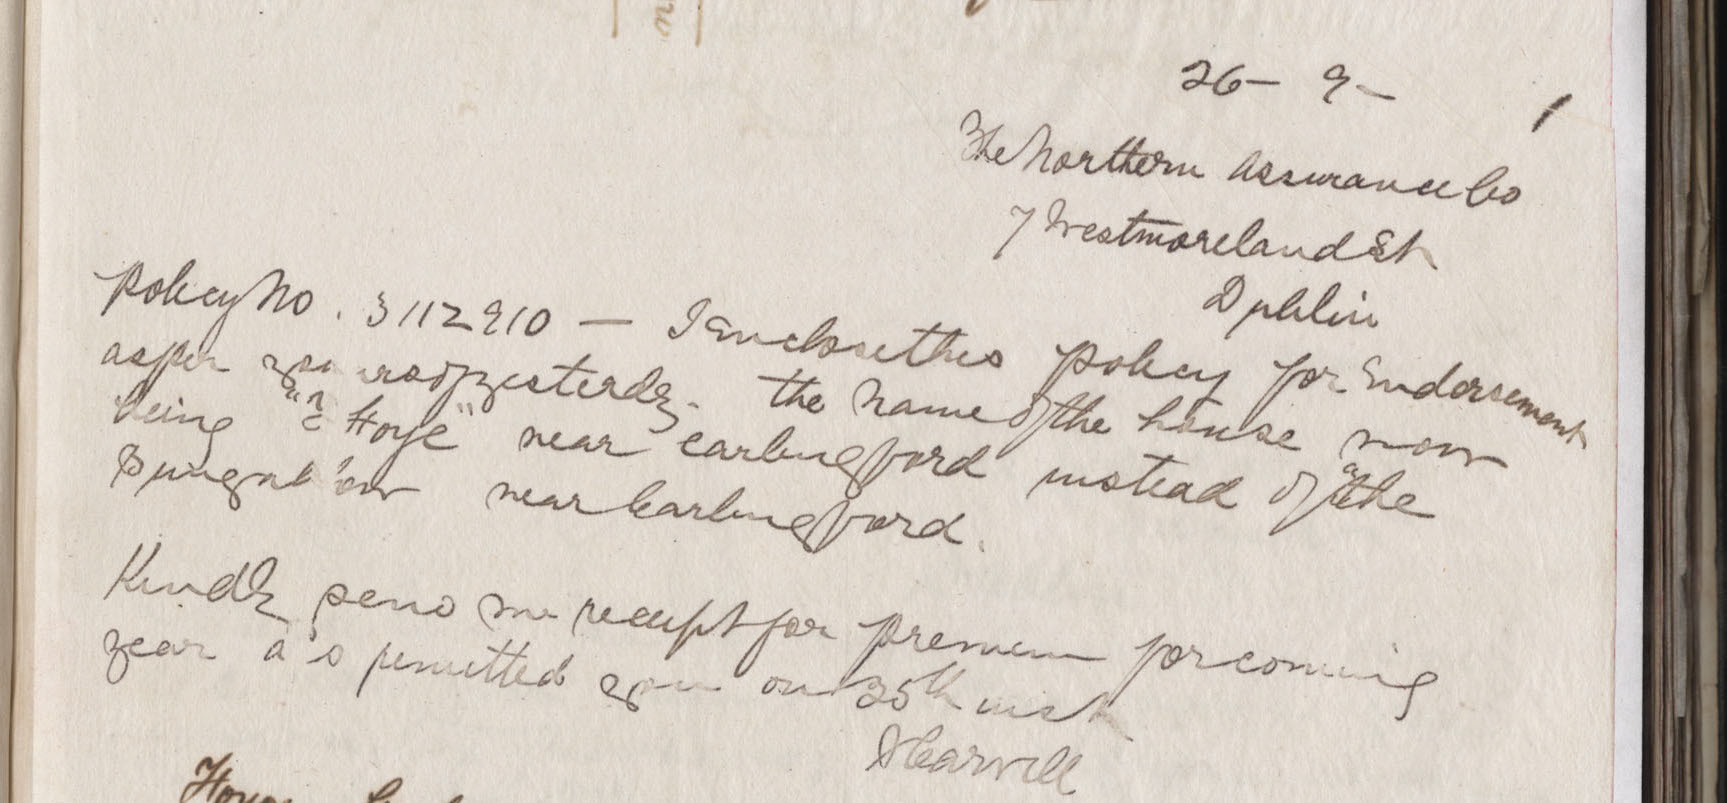 26 - 9 - 1
The Northern Assurance Co
7 Westmoreland St
Dublin
Policy No. 3112910 — I enclose this policy for Endorsement
as per yours of yesterdy. the name of the house now
being " Hoye" near Carlingford instead of "the
Bungalow near Carlingford.
Kindly send me receipt for premium for coming
year as remitted you on 25th inst
Carvill